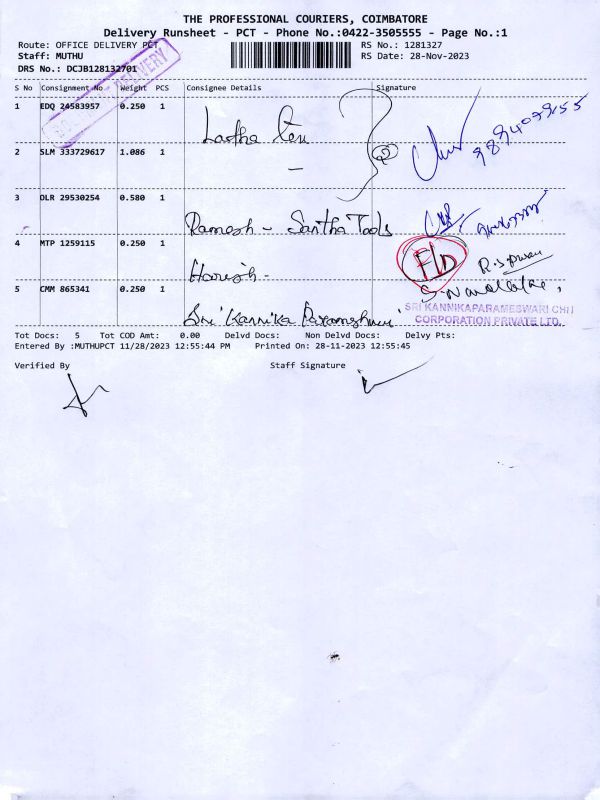 THE PROFESSIONAL COURIERS, COIMBATORE
Delivery Runsheet - PCT - Phone No.:0422-3505555 - Page No.:1
Route: OFFICE DELIVERY PCT
RS No.: 1281327
Staff: MUTHU
RS Date: 28-Nov-2023
DRS No.: DCJB128132701
DELIVERY
S No Consignment No Weight PCS Consignee Details Signature
1 EDQ 24583957 0.250 1
2 SLM 333729617 1.086 1
3 DLR 29530254 0.580 1
Ramesh - Santha Tools
4 MTP 1259115 0.250 1
Haresh -
5 CMM 865341 0.250 1
Sri Kannika
SRI KANNIKAPARAMESWARI CHIT
CORPORATION PRIVATE LTD.
Tot Docs: 5 Tot COD Amt: 0.00 Delvd Docs: Non Delvd Docs: Delvy Pts:
Entered By :MUTHUPCT 11/28/2023 12:55:44 PM Printed On: 28-11-2023 12:55:45
Verified By Staff Signature